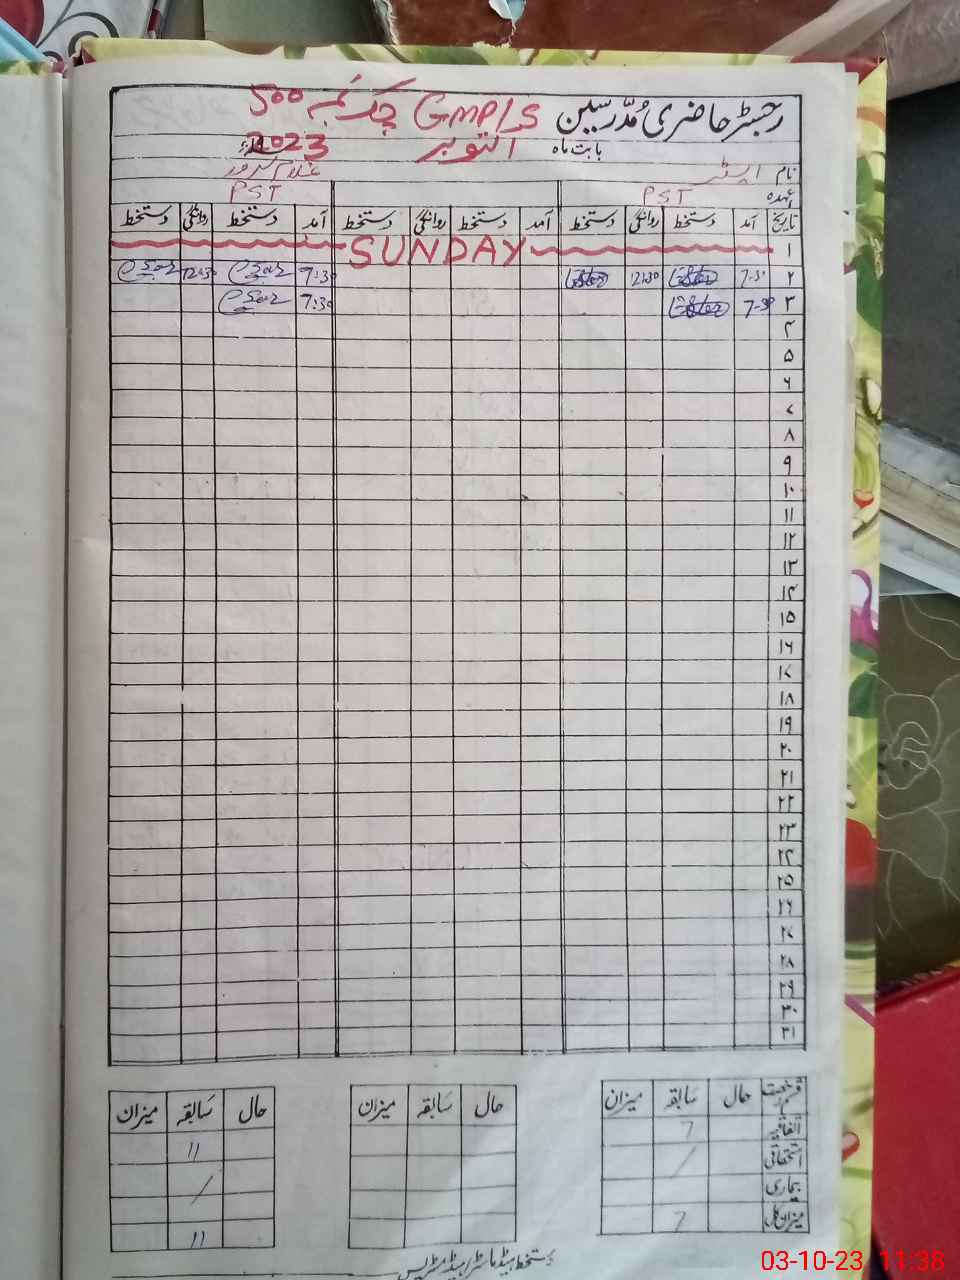 رجسٹر حاضری مُدّرسین GMP/S چک نمبر 500
بابت ماہ اکتوبر 2023ء
نام ایسٹر غلام سرور
عہدہ PST PST
تاریخ آمد دستخط روانگی دستخط آمد دستخط روانگی دستخط آمد دستخط روانگی دستخط
۱ SUNDAY
۲ 7-30 Ester 12:30 Ester 7:30 12:30
۳ 7-30 Ester 7:30
۴
۵
۶
۷
۸
۹
۱۰
۱۱
۱۲
۱۳
۱۴
۱۵
۱۶
۱۷
۱۸
۱۹
۲۰
۲۱
۲۲
۲۳
۲۴
۲۵
۲۶
۲۷
۲۸
۲۹
۳۰
۳۱
قسم رخصت حال سابقہ میزان حال سابقہ میزان حال سابقہ میزان
اتفاقیہ 7 11
استحقاقی / /
بیماری
میزان کل 7 11
دستخط ہیڈ ماسٹر/ہیڈ مسٹریس
03-10-23 11:38